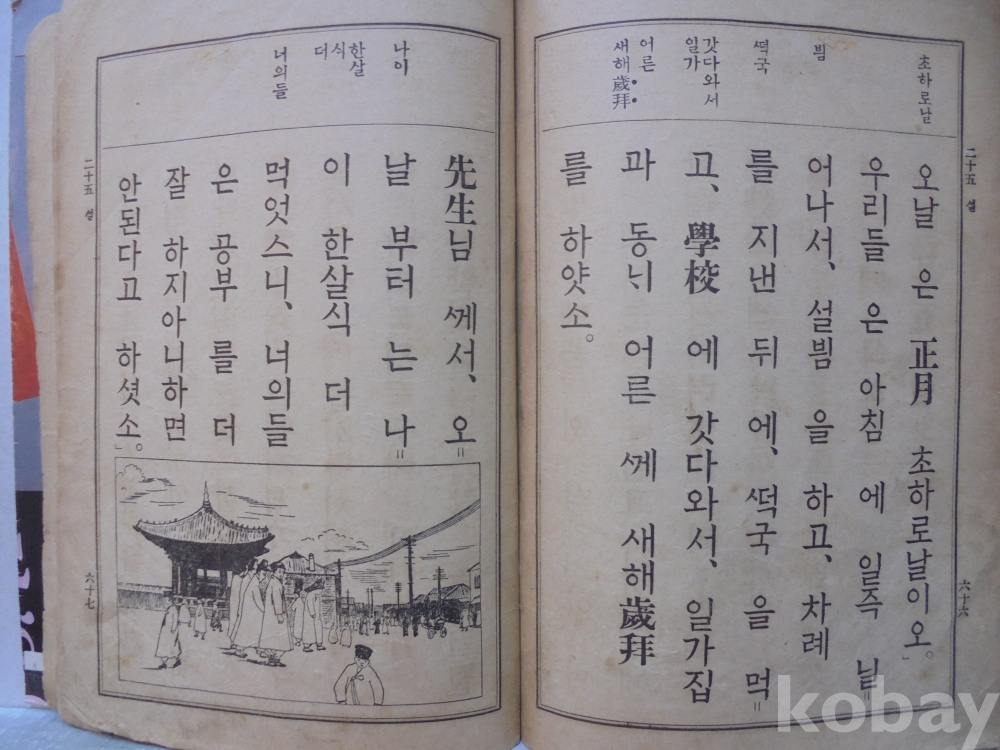 초하로날
빔
떡국
갓다와서
일가
어른
새해歲拜
二十五 설
오날 은 正月 초하로날이오。
우리들 은 아침 에 일즉 닐
어나서、설빔 을 하고、차례
를 지낸 뒤 에、떡국 을 먹
고、學校 에 갓다와서、일가집
과 동늬 어른 께 새해歲拜
를 하얏소。
六十六
나이
한살
식
더
너의들
先生님 께서、오
날 부터 는 나
이 한살식 더
먹엇스니、너의들
은 공부 를 더
잘 하지아니하면
안된다고 하셧소」。
二十五 설
六十七
kobay